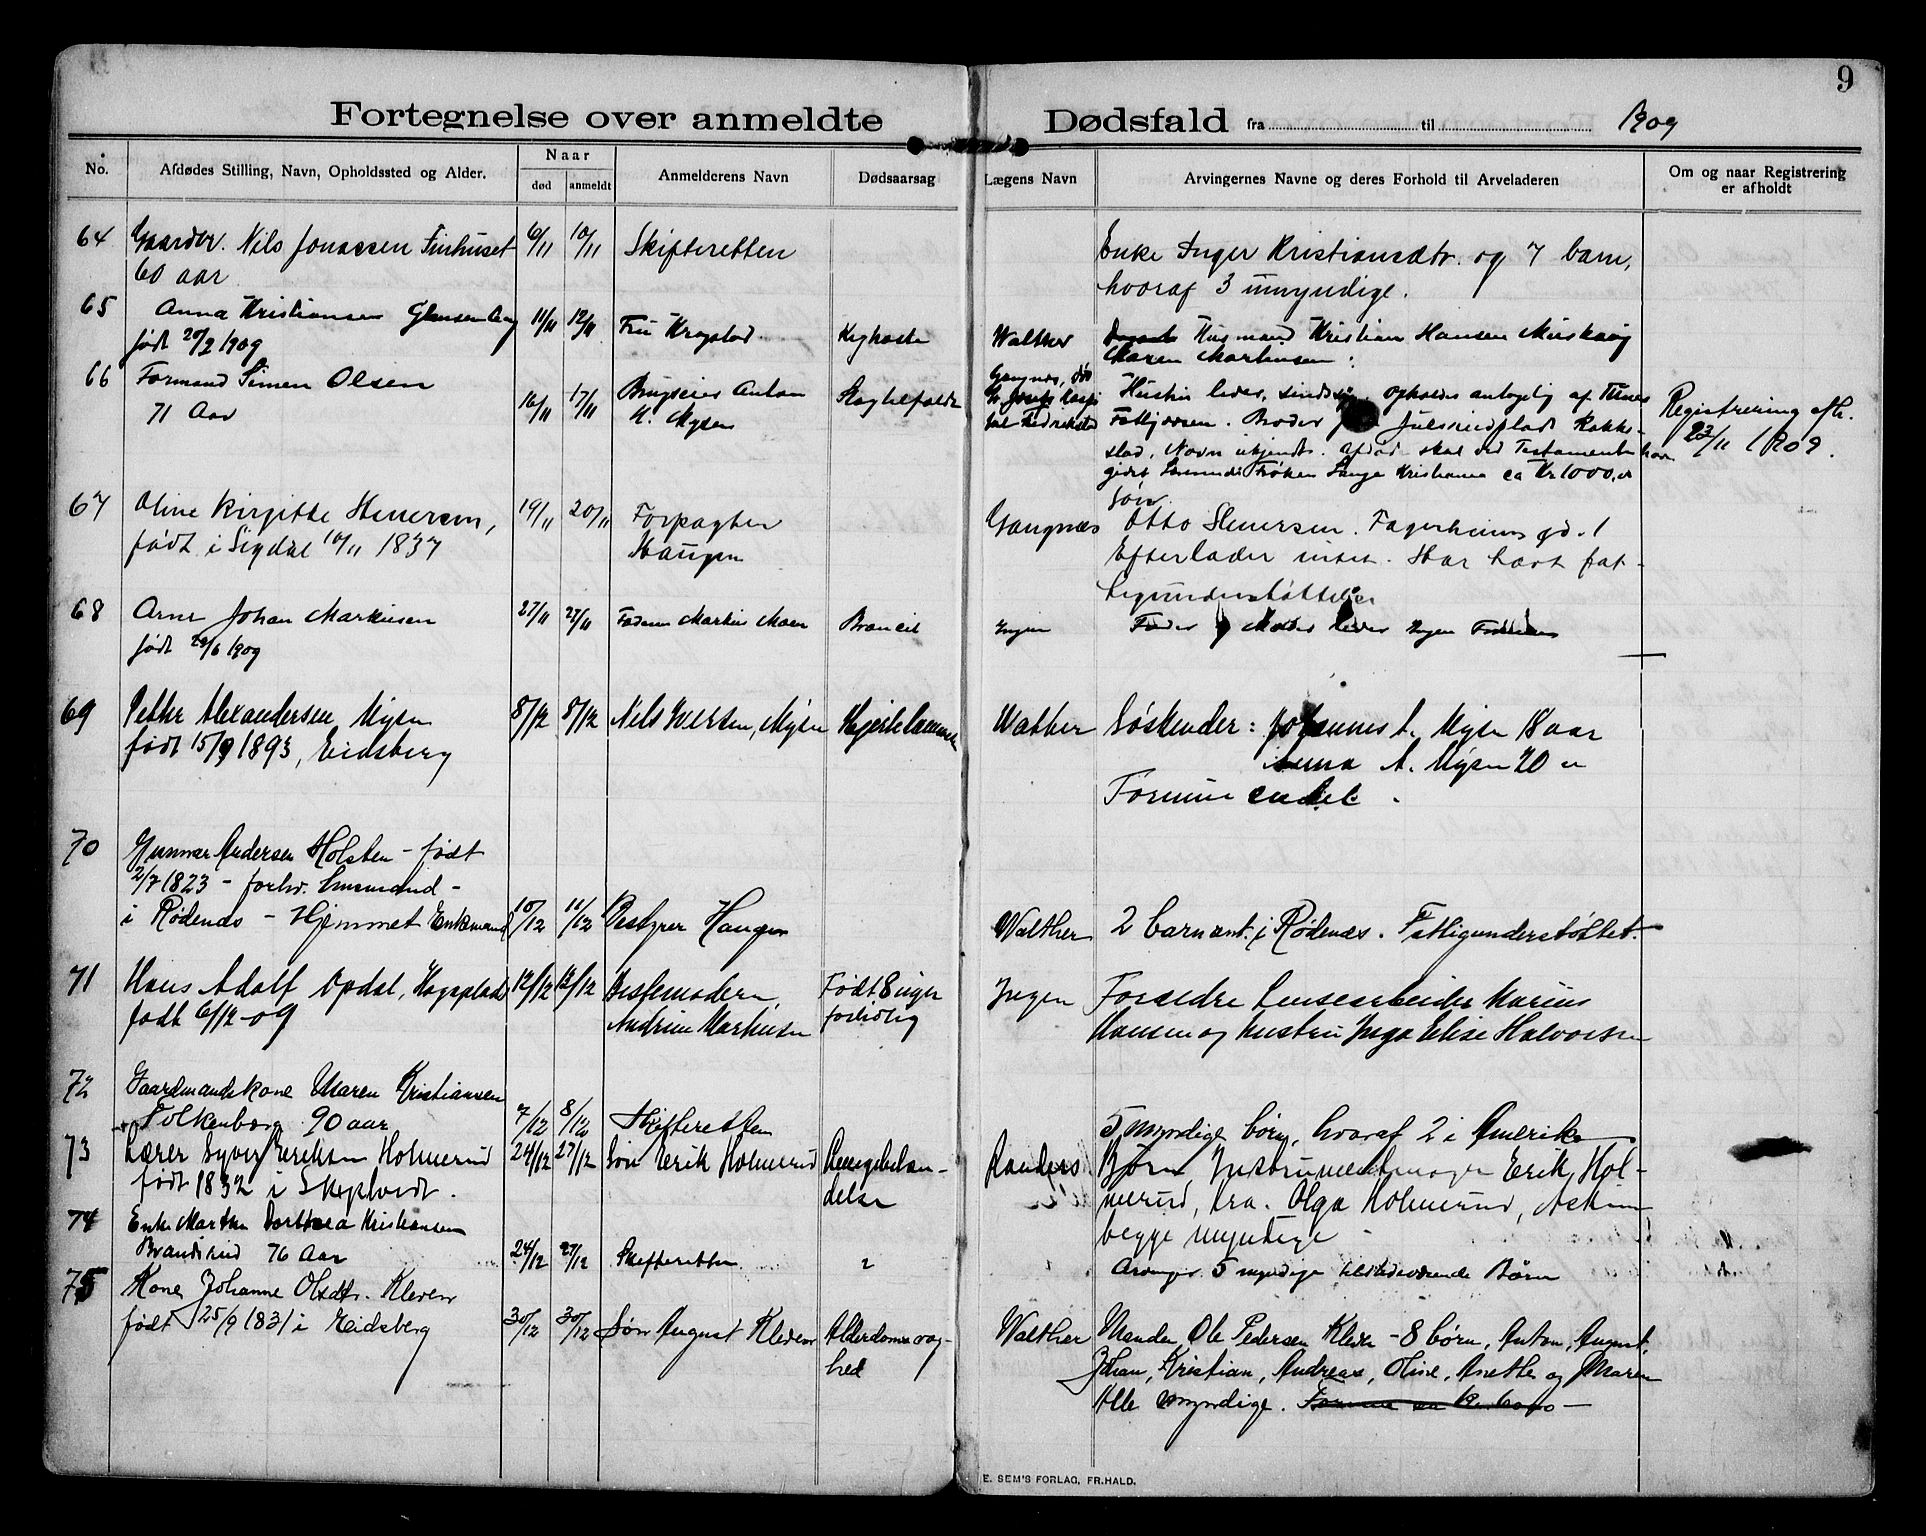 9
Fortegnelse over anmeldte Dødsfald fra til 1909
No.
Afdødes Stilling, Navn, Opholdssted og Alder.
Naar
død
anmeldt
Anmelderens Navn
Dødsaarsag
Lægens Navn
Arvingernes Navne og deres Forhold til Arveladeren
Om og naar Registrering
er afholdt
64 Gaardbr. Nils Jonassen Finhuset 6/11 10/11 Skifteretten Enke Inger Kristiansdtr. og 7 barn,
60 aar hvoraf 3 umyndige.
65 Anna Kristiansen 11/11 12/11 Fru Krogstad Kighoste Walther Husmand Kristian Hansen
født 20/2 1909 Maren Markusen
66 Formand Simen Olsen 16/11 17/11 Brugseier Anton Hustru lever, opholdes antagelig af
71 Aar M. Mysen Broder Navn ukjendt. Afdød skal ved Testament
Kristiania ca Kr 1000,
Registrering afh.
23/11 1909.
67 Oline Birgitte Stenersen, 19/11 20/11 Forpagter Gangnæs Søn Otto Stenersen. Fagerheimsgd. 1
født i Sigdal 10/11 1837 Haugen Efterlader intet. Har havt fat-
tigunderstøttelse
68 Arne Johan Markusen 27/11 27/11 Faderen Markus Moen Ingen Fader og Moder lever Ingen
født 29/6 1909
69 Petter Alexandersen Mysen 8/12 8/12 Nils Iversen, Mysen Walther Søskender: Johannes A. Mysen 18 aar
født 15/9 1893, Eidsberg Anna A. Mysen 20 "
Formue endel.
70 Gunnar Andersen Holsten - født
2/7 1823 - forhv. husmand -
i Rødenæs - Hjemmet Enkemand 10/12 11/12 Bestyrer Haugen Walther 2 barn ant. i Rødenæs. Fattigunderstøttet.
71 Hans Adolf Opdal, Hagaplads 12/12 12/12 Bestemoderen, Født 8 uger Ingen Forældre Marius
født 6/12-09 Andrine Markusen fortidlig Hansen og hustru Inga Elise Halvorsen
72 Gaardmandskone Maren Kristiansen
Folkenborg 90 aar 7/12 8/12 Skifteretten 5 myndige børn, hvoraf 2 i Amerika
73 Lærer Syver Eriksen Holmerud 24/12 27/12 Søn Erik Holmerud Lungebetæn- Randers Børn, Instrumentmager Erik Hol-
født 1832 i Skiptvedt. delse merud, fra. Olga Holmerud, Askim
begge myndige
74 Enke Marthe Dorthea Kristiansen
Brandsrud 76 Aar 24/12 27/12 Skifteretten ? Arvinger 5 myndige tilstedeværende Børn
75 Kone Johanne Olsdtr. Kleven
født 25/9 1831 i Eidsberg 30/12 30/12 Søn August Kleven Alderdomssvag- Walther Manden Ole Pedersen Kleven - 8 børn, Anton, August,
hed Johan, Kristian, Andreas, Oline, Anethe og Maren
Alle myndige.
E. SEM'S FORLAG, FR.HALD.